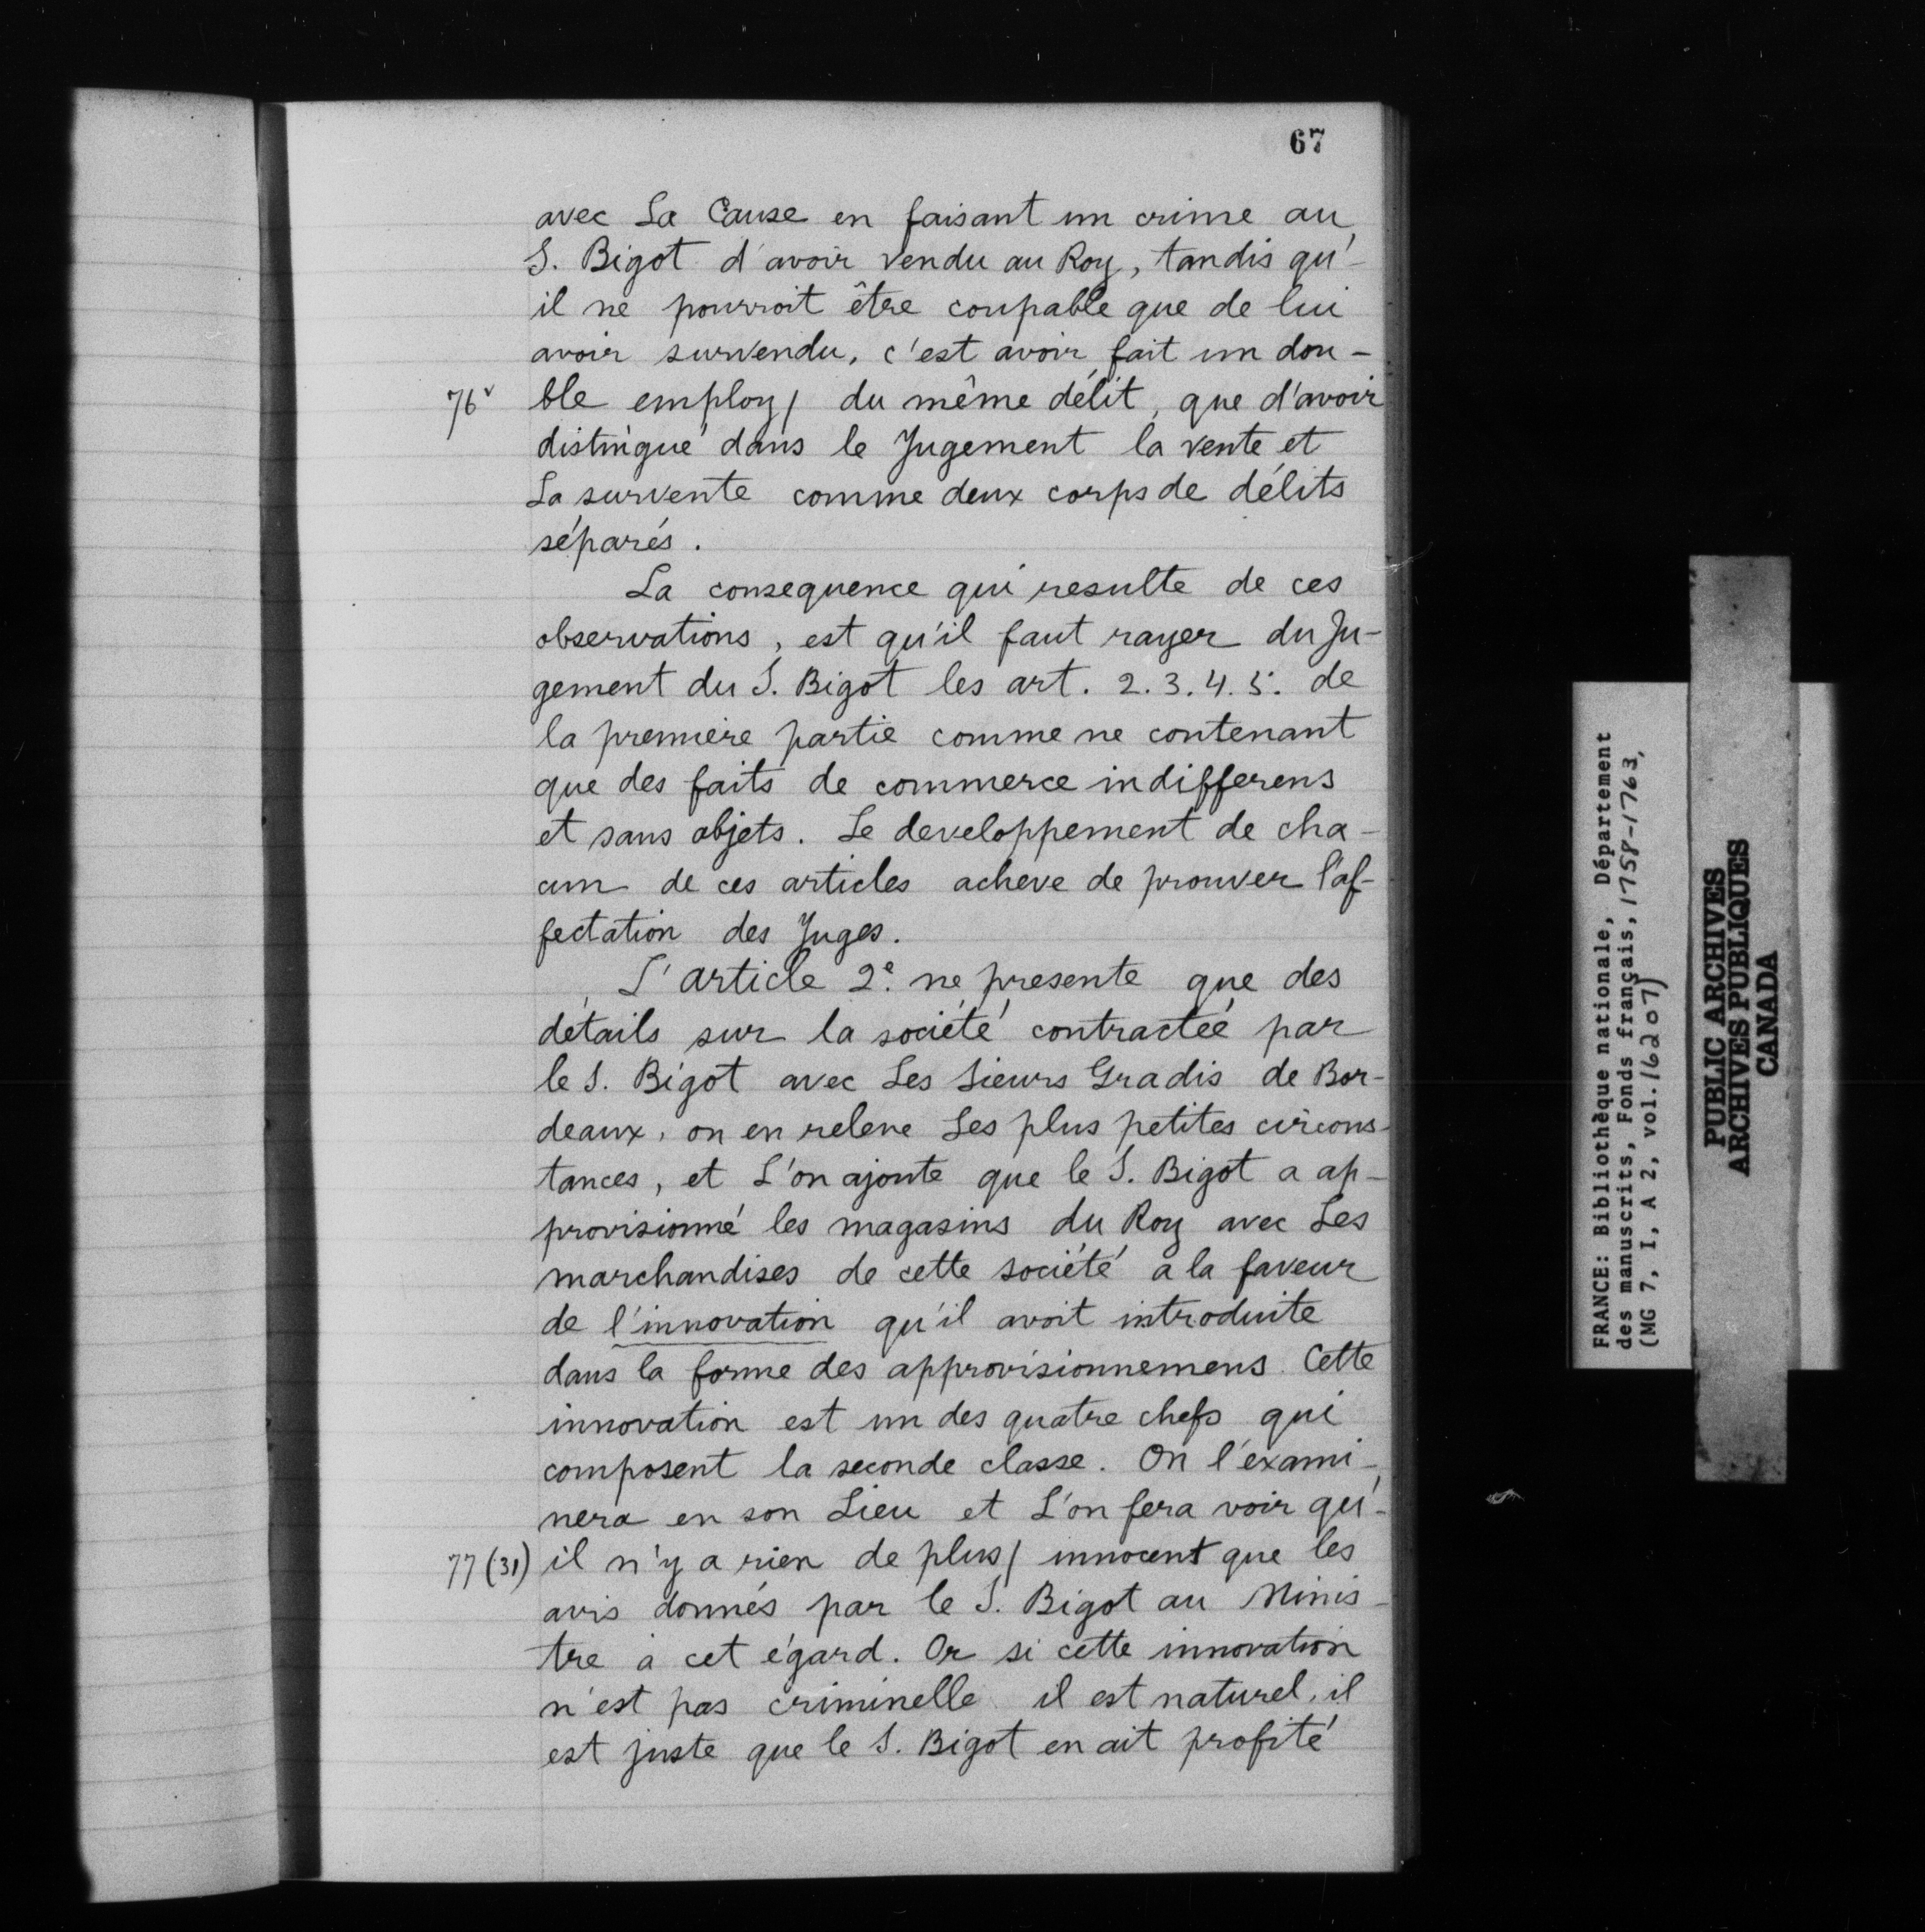 67
avec La Cause en faisant un crime au
S. Bigot d'avoir vendu au Roy, tandis qu'-
il ne pourroit être coupable que de lui
avoir survendu, c'est avoir fait un dou-
76v ble employ/ du même délit, que d'avoir
distingué dans le Jugement la vente et
La survente comme deux corps de délits
séparés.
La consequence qui resulte de ces
observations, est qu'il faut rayer du Ju-
gement du S. Bigot les art. 2.3.4.5. de
la premiere partie comme ne contenant
que des faits de commerce indifferens
et sans objets. Le developpement de cha-
cun de ces articles acheve de prouver l'af-
fectation des Juges.
L'article 2e. ne presente que des
détails sur la société contractée par
le S. Bigot avec Les Sieurs Gradis de Bor-
deaux, on en releve Les plus petites circons-
tances, et L'on ajoute que le S. Bigot a ap-
provisionné les magasins du Roy avec Les
marchandises de cette société a la faveur
de l'innovation qu'il avoit introduite
dans la forme des approvisionnemens. Cette
innovation est un des quatre chefs qui
composent la seconde classe. On l'exami-
nera en son Lieu et L'on fera voir qu'-
77 (31) il n'y a rien de plus/ innocent que les
avis donnés par le S. Bigot au Minis-
tre à cet égard. Or si cette innovation
n'est pas criminelle il est naturel, il
est juste que le S. Bigot en ait profité
FRANCE: Bibliothèque nationale, Département
des manuscrits, Fonds français, 1758-1763,
(MG 7, I, A 2, vol. 16207)
PUBLIC ARCHIVES
ARCHIVES PUBLIQUES
CANADA